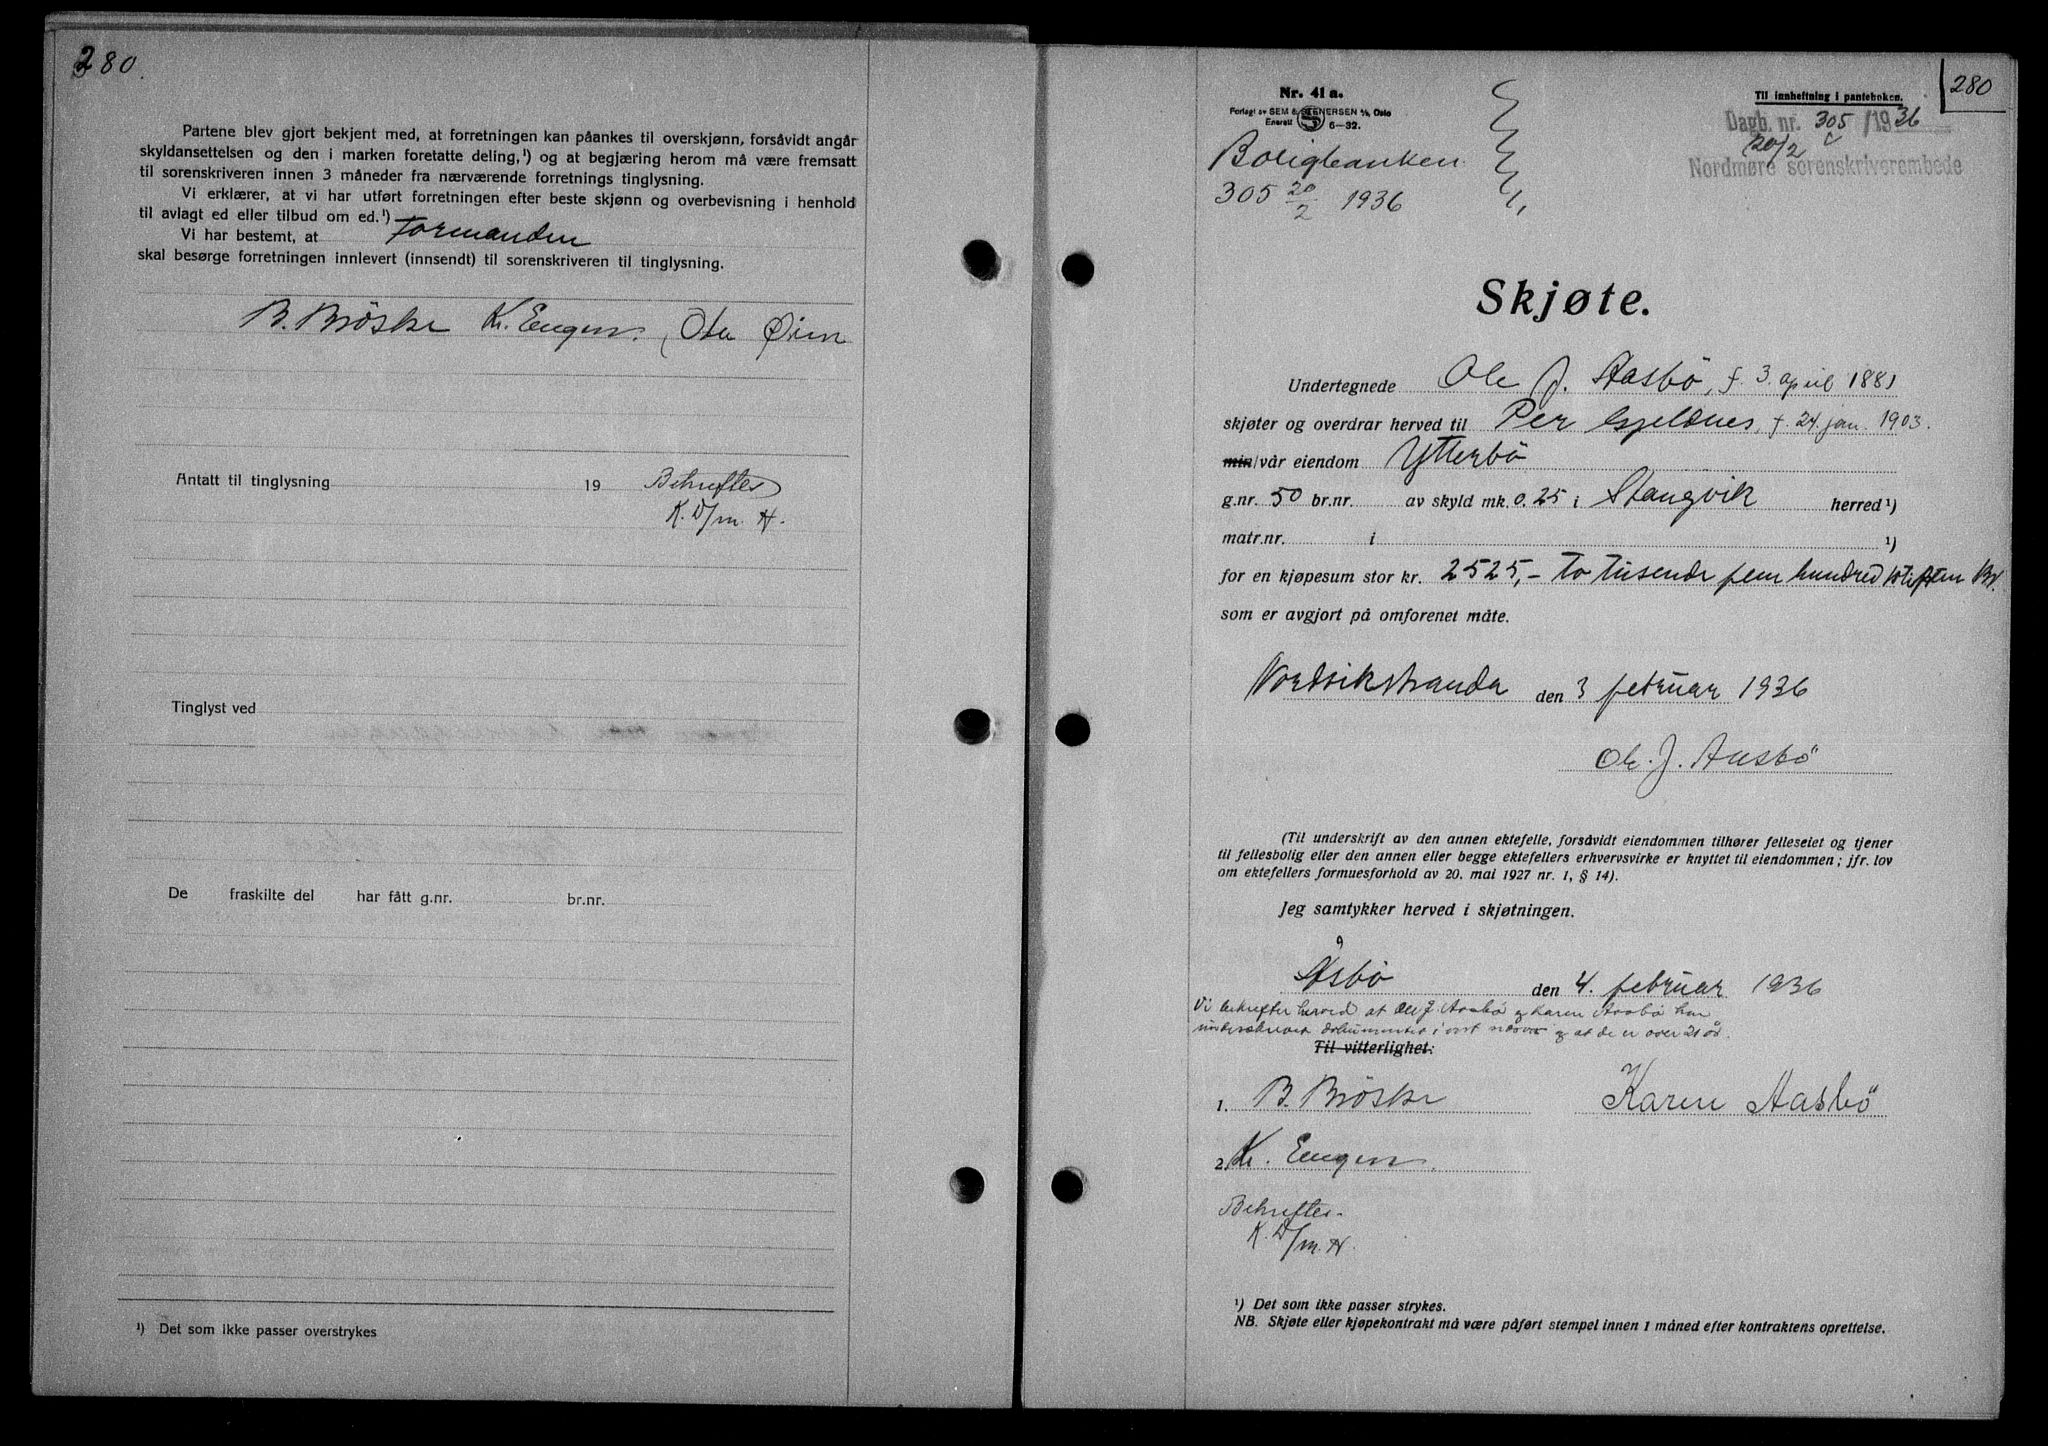 280.
Partene blev gjort bekjent med, at forretningen kan påankes til overskjønn, forsåvidt angår
skyldansettelsen og den i marken foretatte deling,¹) og at begjæring herom må være fremsatt
til sorenskriveren innen 3 måneder fra nærværende forretnings tinglysning.
Vi erklærer, at vi har utført forretningen efter beste skjønn og overbevisning i henhold
til avlagt ed eller tilbud om ed.¹)
Vi har bestemt, at Formanden
skal besørge forretningen innlevert (innsendt) til sorenskriveren til tinglysning.
B. Brøske Kr. Engen. Ola Øien
Antatt til tinglysning 19 Bekreftes
K. D/m. H.
Tinglyst ved
De fraskilte del har fått g.nr. br.nr.
¹) Det som ikke passer overstrykes
280
Nr. 41 a.
Til innheftning i panteboken.
Forlagt av SEM & STENERSEN A/S, Oslo
Enerett S 6-32.
Dagb. nr. 305 /1936
20/2
Nordmøre sorenskriverembede
Boligbanken
305 20/2 1936
Skjøte.
Undertegnede Ole J. Aasbö, f. 3. april 1881
skjøter og overdrar herved til Per Gjeldnes, f. 24 jan. 1903.
min/vår eiendom Ytterbö
g.nr. 50 br.nr. av skyld mk. 0.25 i Stangvik herred ¹)
matr.nr. i ¹)
for en kjøpesum stor kr. 2525,- to tusende fem hundred kr.
som er avgjort på omforenet måte.
Nordvikstranda den 3 februar 1936
Ole. J. Aasbö
(Til underskrift av den annen ektefelle, forsåvidt eiendommen tilhører felleseiet og tjener
til fellesbolig eller den annen eller begge ektefellers erhvervsvirke er knyttet til eiendommen; jfr. lov
om ektefellers formuesforhold av 20. mai 1927 nr. 1, § 14).
Jeg samtykker herved i skjøtningen.
Åsbö den 4. februar 1936
Vi bekrefter herved at Ole J. Aasbö og Karen Aasbö har
underskrevet dokumentet i vort nærvær og at de er over 21 år.
Til vitterlighet:
1. B. Brøske Karen Aasbö
2. Kr. Engen
Bekreftes.
K. D/m. H.
¹) Det som ikke passer strykes.
NB. Skjøte eller kjøpekontrakt må være påført stempel innen 1 måned efter kontraktens oprettelse.